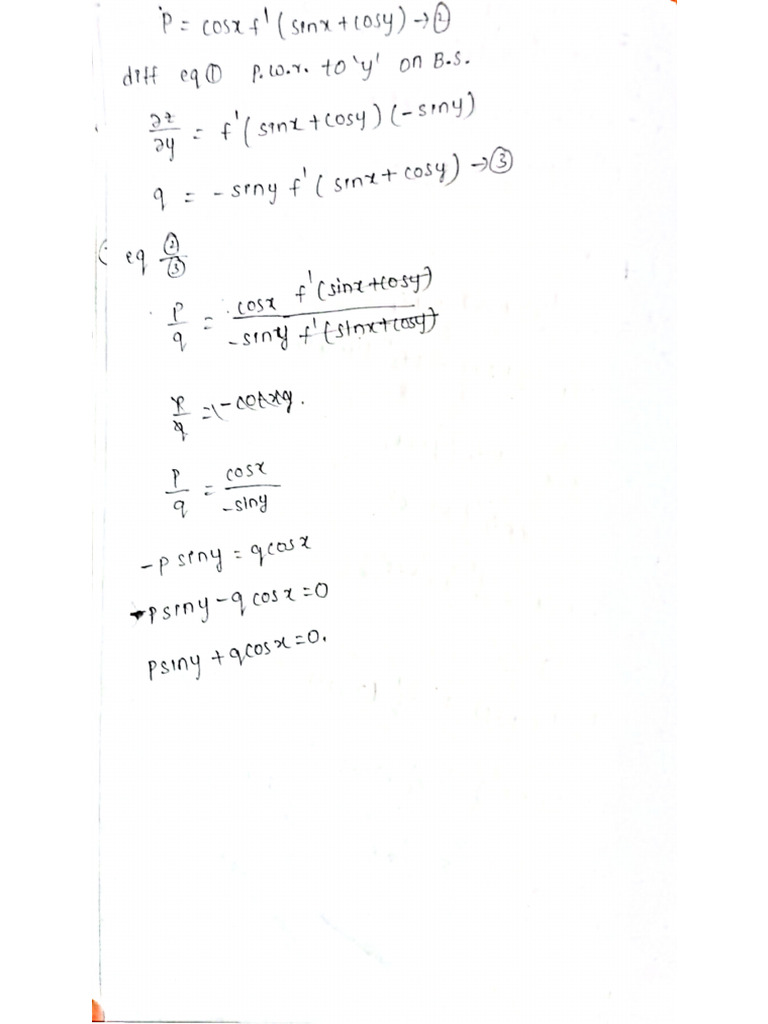 P = cosx f'(sinx + cosy) → ②
diff eq ① P.w.r. to 'y' on B.S.
∂z/∂y = f'(sinx + cosy) (-siny)
q = - siny f'(sinx + cosy) → ③
eq ②/③
P/q = cosx f'(sinx+cosy) / -siny f'(sinx+cosy)
P/q = cosx / -siny
-P siny = q cosx
-P siny - q cosx = 0
P siny + q cosx = 0.